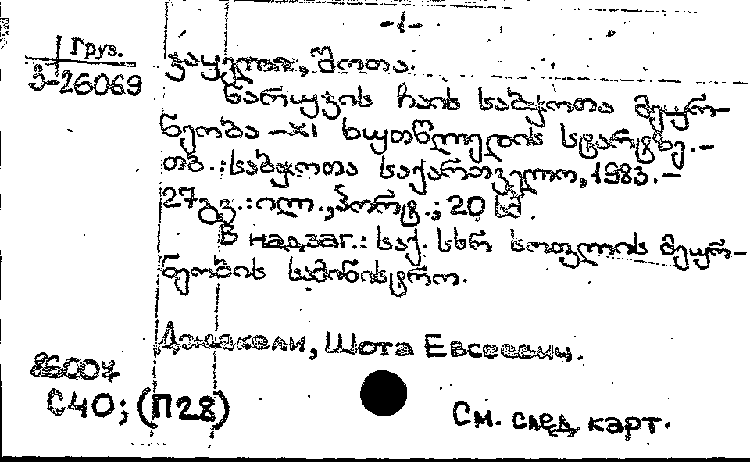 -1-
Груз.
3-26069
ჯაყელი, შოთა.
ჩაის საბჭოთა მეურ-
ნეობა – XI ხუთწლედის სტარტზე. –
თბ.: საბჭოთა საქართველო, 1983. –
27 გვ.: ილ., პორტ.; 20 სმ.
В надзаг.: საქ. სსრ სოფლის მეურ-
ნეობის სამინისტრო.
Джакели, Шота Евсеевич.
86007
С40; (П28)
См. след карт.